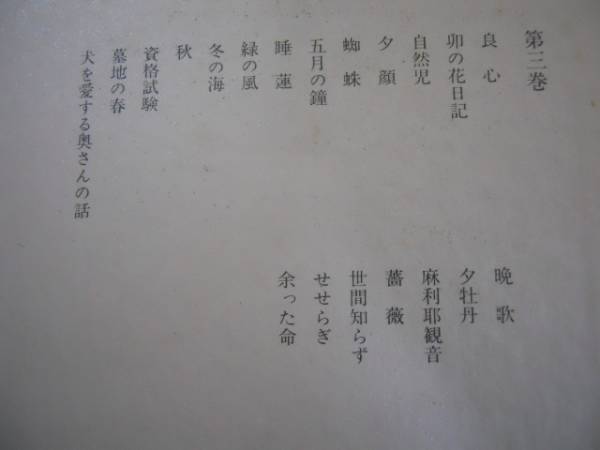 第三巻
良心
卯の花日記
自然児
夕顔
蜘蛛
五月の鐘
睡蓮
緑の風
冬の海
秋
資格試験
墓地の春
犬を愛する奥さんの話
晩歌
夕牡丹
麻利耶観音
薔薇
世間知らず
せせらぎ
余った命